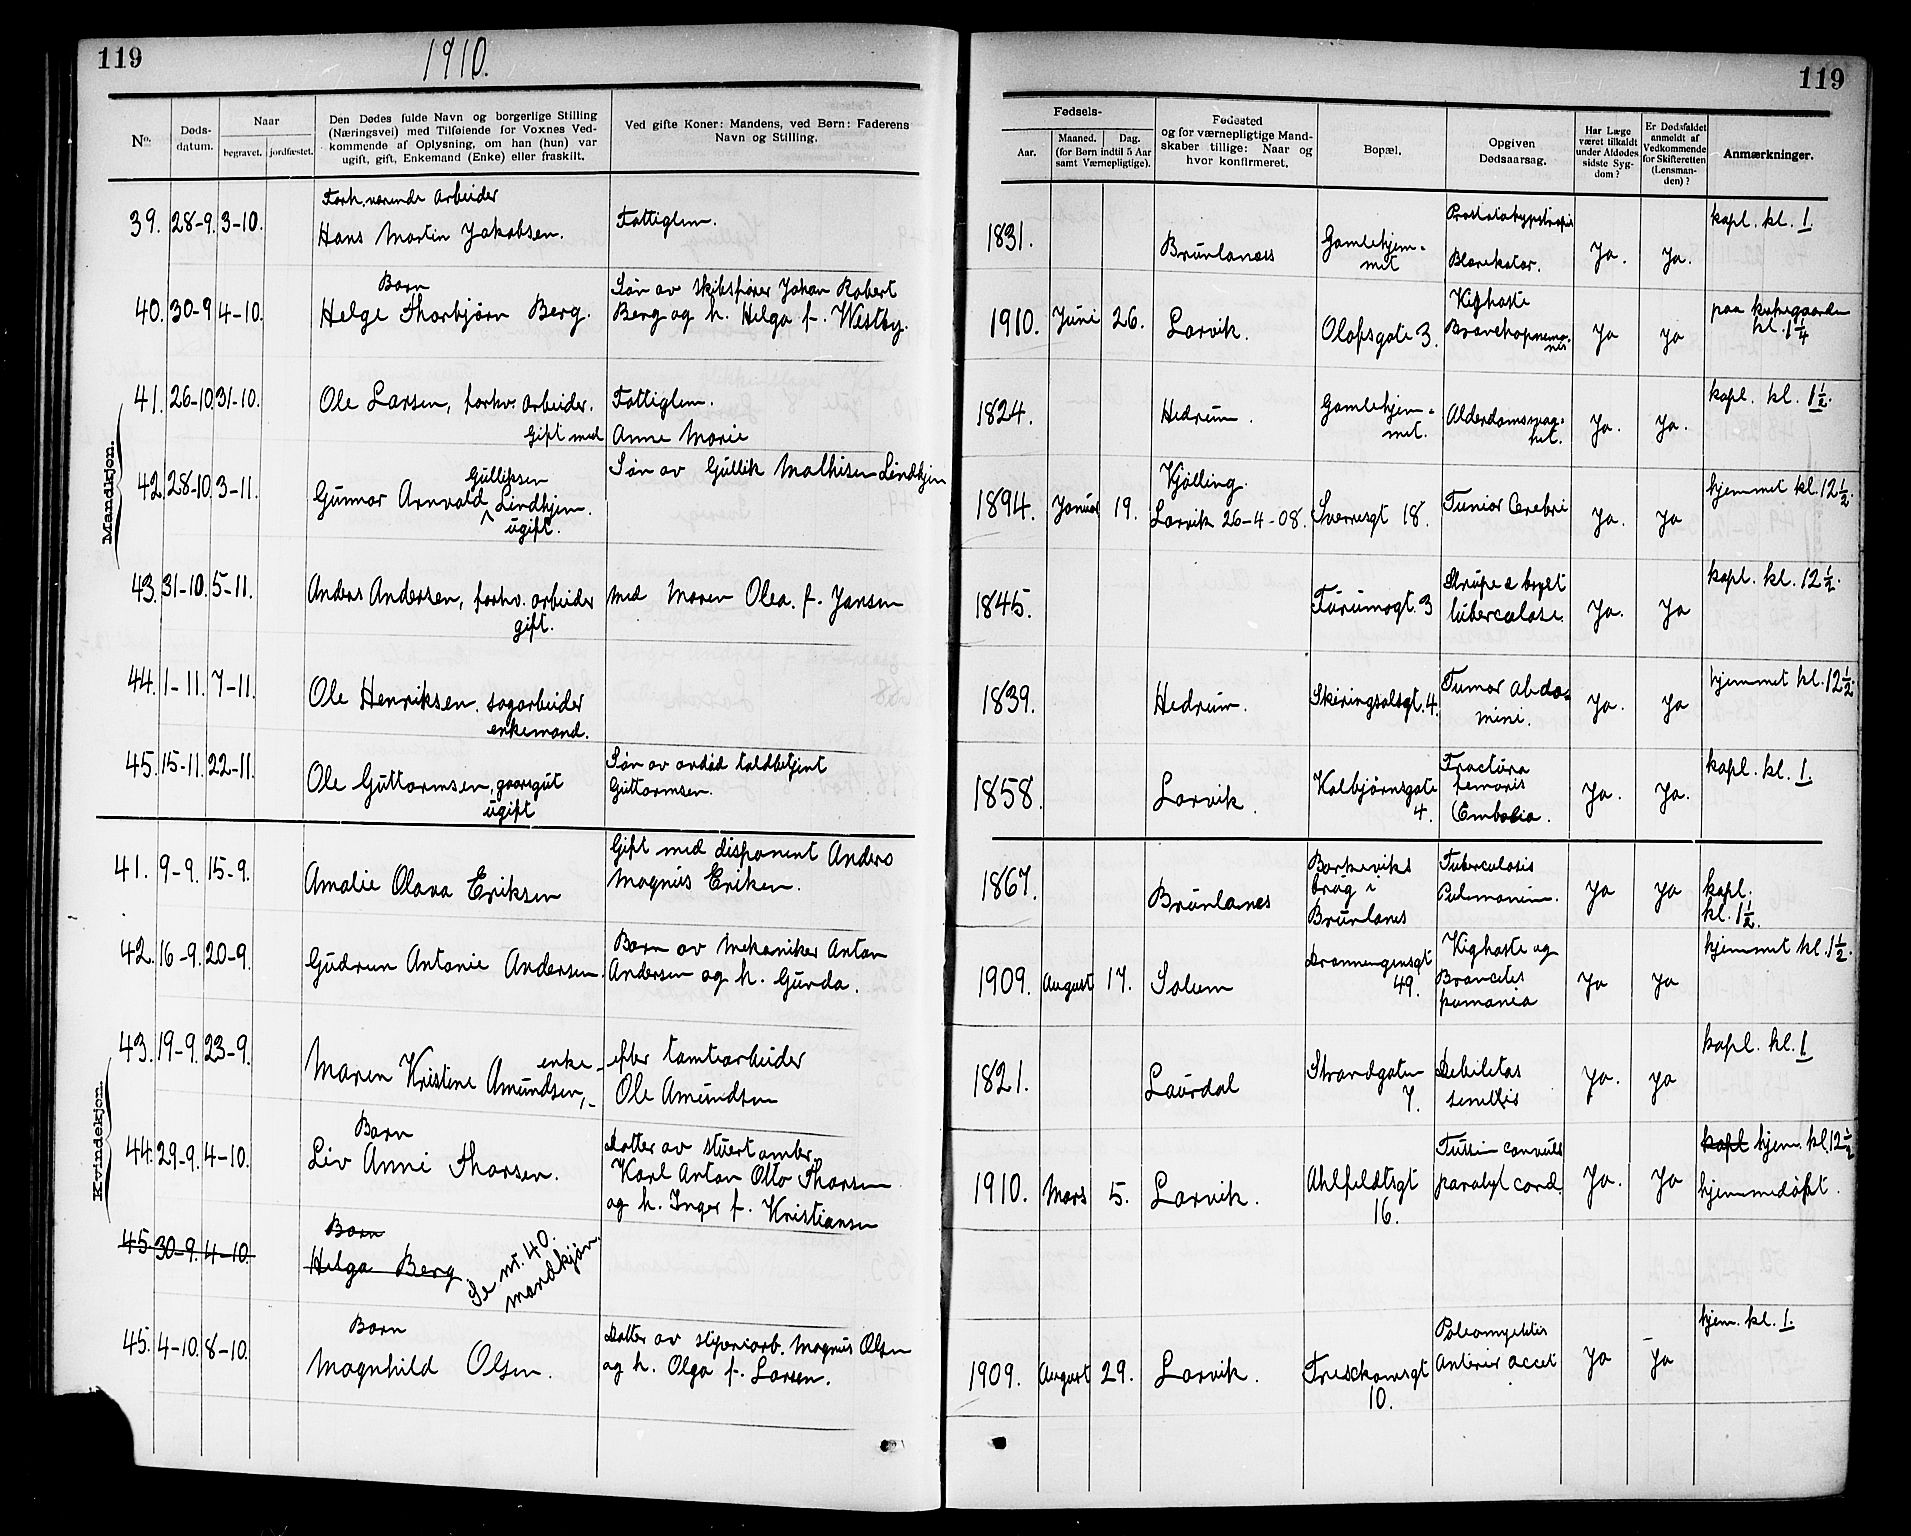 119
1910.
119
No.
Døds-
datum.
Naar
begravet.
jordfæstet.
Den Dødes fulde Navn og borgerlige Stilling
(Næringsvei) med Tilføiende for Voxnes Ved-
kommende af Oplysning, om han (hun) var
ugift, gift, Enkemand (Enke) eller fraskilt.
Ved gifte Koner: Mandens, ved Børn: Faderens
Navn og Stilling.
Fødsels-
Aar.
Maaned.
Dag.
(for Børn indtil 5 Aar
samt Værnepligtige).
Fødested
og for værnepligtige Mand-
skaber tillige: Naar og
hvor konfirmeret.
Bopæl.
Opgiven
Dødsaarsag.
Har Læge
været tilkaldt
under Afdødes
sidste Syg-
dom?
Er Dødsfaldet
anmeldt af
Vedkommende
for Skifteretten
(Lensman-
den)?
Anmærkninger.
Mandkjøn.
39. 28-9. 3-10.
Forh.værende Arbeider
Hans Martin Jakobsen.
Fattiglem.
1831.
Brunlanes
Gamlehjem-
met
Blærekatar.
Ja. Ja.
kapl. kl. 1.
40. 30-9 4-10.
Barn
Helge Thorbjørn Berg.
Søn av skibsfører Johan Robert
Berg og h. Helga f. Westby.
1910. Juni 26. Larvik.
Olafsgate 3.
Kighoste
Ja Ja
paa kirkegaarden
kl. 1 1/4
41. 26-10 31-10.
Ole Larsen, forhv. arbeider.
Gift med
Fattiglem.
Anne Marie
1824.
Hedrum.
Gamlehjem-
met.
Alderdomssvag-
het.
Ja. Ja.
kapl. kl. 1 1/2.
42. 28-10. 3-11.
Gulliksen
Gunnar Arnvald Lindhjem.
ugift.
Søn av Gullik Mathisen Lindhjem
1894. Januar 19.
Kjølling.
Larvik 26-4-08.
Sverresgt 18.
Tumor Cerebri
Ja. Ja
hjemmet kl. 12 1/2.
43. 31-10. 5-11.
Anders Andersen, forhv. arbeider
gift.
med Maren Olea. f. Jansen
1845.
Furumogt. 3
Strupe & bryst
tuberculose.
Ja. Ja
kapl. kl. 12 1/2.
44. 1-11. 7-11.
Ole Henriksen. sagarbeider
enkemand.
1839.
Hedrum.
Skiringsalsgt. 4.
Tumor abdo-
mini.
Ja. Ja
hjemmet kl. 12 1/2.
45. 15-11. 22-11.
Ole Guttormsen, gaaregut
ugift
Søn av avdød toldbetjent
Guttormsen.
1858.
Larvik.
Kolbjørnsgate
4.
Fractura
femoris
Embolia.
Ja. Ja.
kapl. kl. 1.
Kvindekjøn.
41. 9-9. 15-9.
Amalie Olava Eriksen
Gift med disponent Anders
Magnus Eriksen.
1867.
Brunlanes
Barkeviks
brug i
Brunlanes
Tuberculosis
Pulmonum.
Ja Ja
kapl.
kl. 1 1/2.
42. 16-9. 20-9.
Gudrun Antonie Andersen.
Barn av mekaniker Anton
Andersen og h. Gurda.
1909. August 17. Solum
Dronningensgt
49.
Kighoste og
Ja Ja
hjemmet kl. 1 1/2.
43. 19-9. 23-9.
enke-
Maren Kristine Amundsen,-
efter tomtearbeider
Ole Amundsen
1821.
Laurdal
Strandgaten
7.
Debilitas
senilis
Ja. Ja
kapl. kl. 1
44. 29-9. 4-10.
Barn
Liv Anni Thorsen.
Datter av stuertomber.
Karl Anton Otto Thorsen
og h. Inger f. Kristiansen
1910. Mars 5. Larvik.
Ahlfeldtsgt
16.
Tussi convuls
paralyt cord.
Ja. Ja
kapl hjem. kl 12 1/2
hjemmedøpt.
45. 30-9. 4-10.
Barn
Helga Berg
Se nr. 40.
mandkjøn.
45. 4-10. 8-10.
Barn
Magnhild Olsen.
Datter av sliperiarb. Magnus Olsen
og h. Olga f. Larsen.
1909. August 29. Larvik.
10.
Ja Ja
hjem. kl. 1.